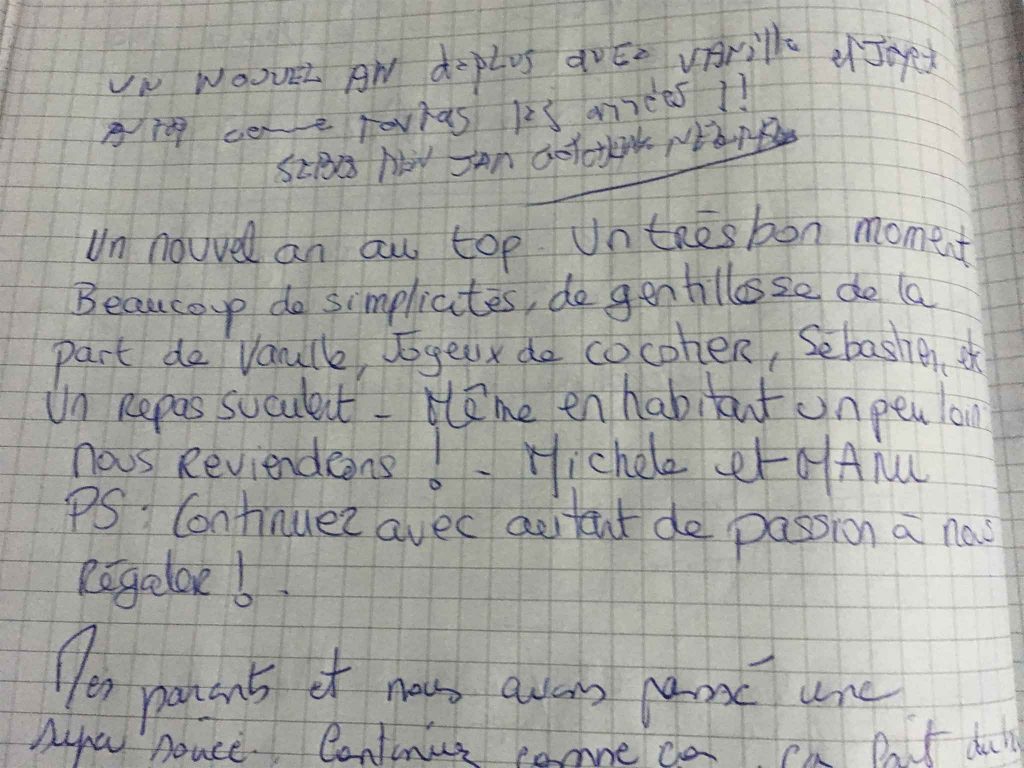 UN NOUVEL AN de PLUS avec VANille et
come toutes les années !!
Un nouvel an au top. Un très bon moment
Beaucoup de simplicités, de gentillesse de la
part de Vanille, Jogeux de cocotier, Sébastien, etc
Un Repas suculent - Même en habitant un peu loin
nous Reviendrons ! - Michele et MANU
PS : Continuez avec autant de passion à nous
Régaler ! .
Mes parents et nous avons passé une
super soirée. Continuez comme ça, ça fait du